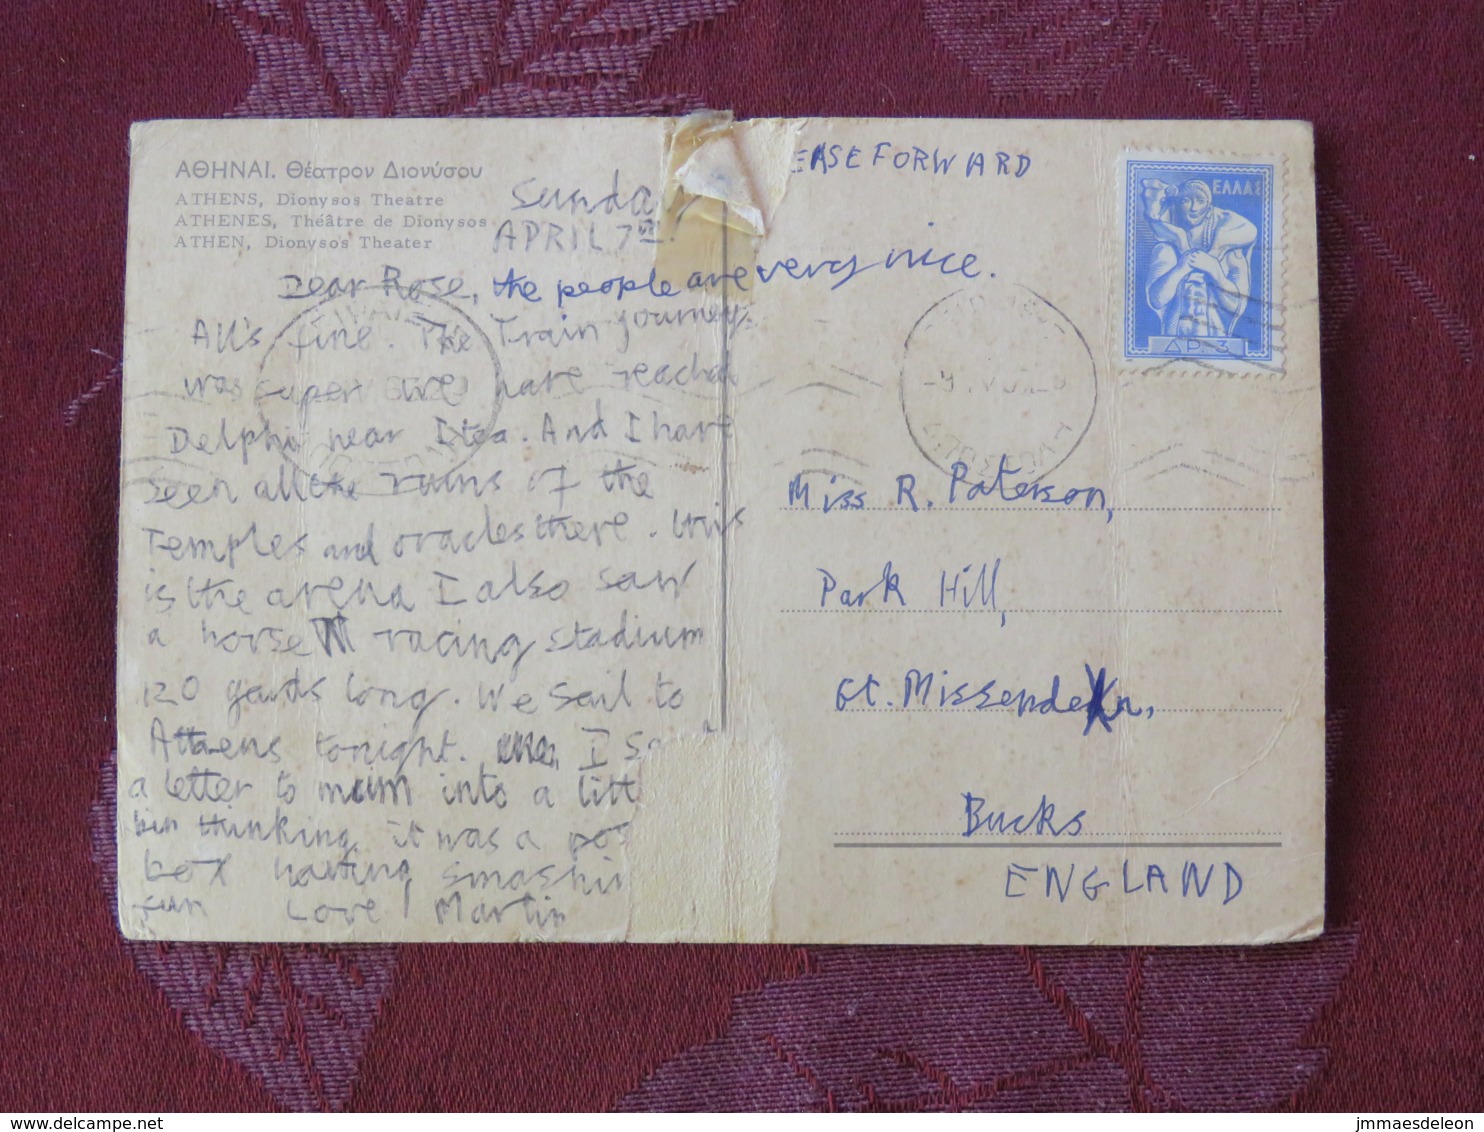 ΑΘΗΝΑΙ. Θέατρον Διονύσου
ATHENS, Dionysos Theatre
ATHENES, Théâtre de Dionysos
ATHEN, Dionysos Theater
Sunday
APRIL 7th.
Dear Rose, the people are very nice.
All's fine. The Train journey
was super. We have reached
Delphi near Itea. And I have
seen all the ruins of the
Temples and oracles there. this
is the arena I also saw
a horse racing stadium
120 yards long. We sail to
Athens tonight. I
a letter to mum into a litt
bin thinking it was a pos
box having smashin
fun Love Martin
EASE FORWARD
ΕΛΛΑΣ
ΔΡ. 3
Miss R. Paterson,
Park Hill,
Gt. Missenden,
Bucks
ENGLAND
jmmaesdeleon